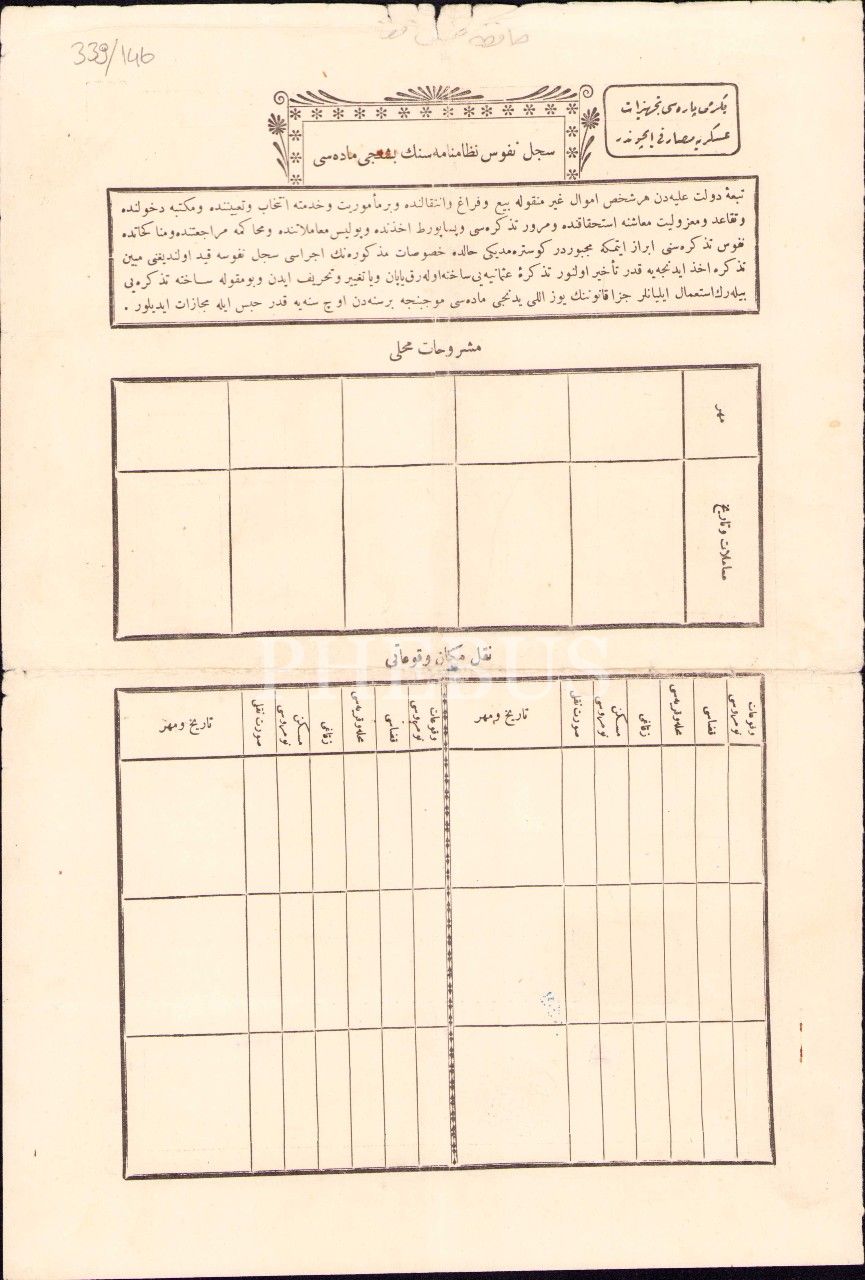 339/146
یكرمی پاره‌سی تجهیزات
عسكریه مصارفی ایچوندر
سجل نفوس نظامنامه سنك بشنجی ماده‌سی
تبعهٔ دولت علیه‌دن هر شخص اموال غیر منقوله بیع و فراغ و انتقالنده و بر مأموریت و خدمته انتخاب و تعییننده و مكتبه دخولنده
و تقاعد و معزولیت معاشنه استحقاقنده و مرور تذكره‌سی و پساپورط اخذنده و پولیس معاملاتنده و محاكمه مراجعتنده و مناكحاتده
نفوس تذكره‌سنی ابراز ایتمكه مجبوردر كوستره‌مدیكی حالده خصوصات مذكوره‌نك اجراسی سجل نفوسه قید اولندیغنی مبین
تذكره اخذ ایدنجه‌یه قدر تأخیر اولنور تذكرهٔ عثمانیه‌یی ساخته اوله‌رق یاپان ویا تغییر و تحریف ایدن و بو مقوله ساخته تذكره‌یی
بیله‌رك استعمال ایلیانلر جزا قانوننك یوز اللی یدنجی ماده‌سی موجبنجه بر سنه‌دن اوچ سنه‌یه قدر حبس ایله مجازات ایدیلور .
مشروحات محلی
مهر
معاملات و تاریخ
نقل مكان وقوعاتی
وقوعات نومروسی
قضاسی
محله و قریه‌سی
زقاغی
مسكن نومروسی
صورت نقل
تاریخ و مهر
وقوعات نومروسی
قضاسی
محله و قریه‌سی
زقاغی
مسكن نومروسی
صورت نقل
تاریخ و مهر
PHEBUS